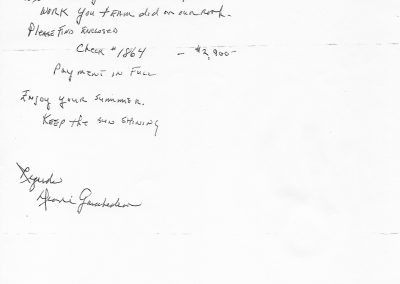 WORK YOU TEAM did on our roof.
PLEASE FIND ENCLOSED
Check #1864 — $2,900—
PAYMENT IN FULL
Enjoy your summer.
KEEP the SUN SHINING
Regards